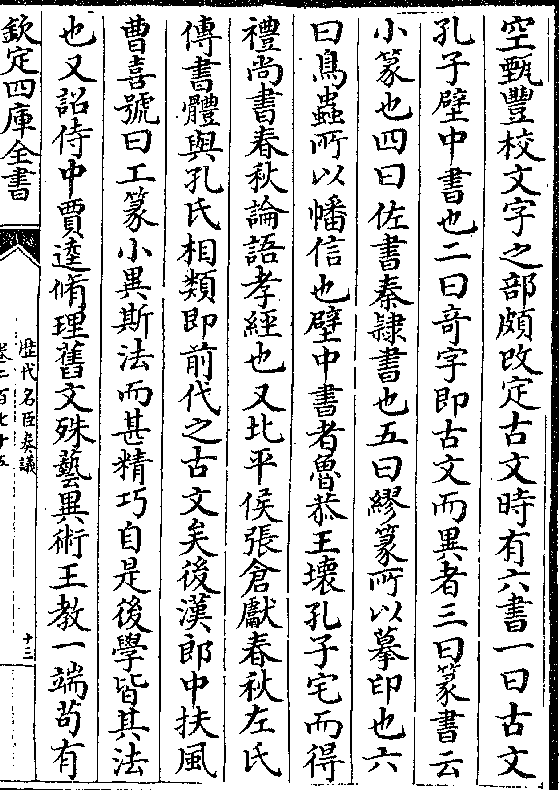 空甄豐校文字之部頗改定古文時有六書一曰古文
孔子壁中書也二曰竒字即古文而異者三曰篆書云
小篆也四曰佐書秦隸書也五曰繆篆所以摹印也六
曰鳥蟲所以幡信也壁中書者魯恭王壞孔子宅而得
禮尚書春秋論語孝經也又北平侯張倉獻春秋左氏
傳書體與孔氏相類即前代之古文矣後漢郎中扶風
曹喜號曰工篆小異斯法而甚精巧自是後學皆其法
也又詔侍中賈逵脩理舊文殊藝異術王教一端苟有
欽定四庫全書
歴代名臣奏議
卷二百七十五
十三